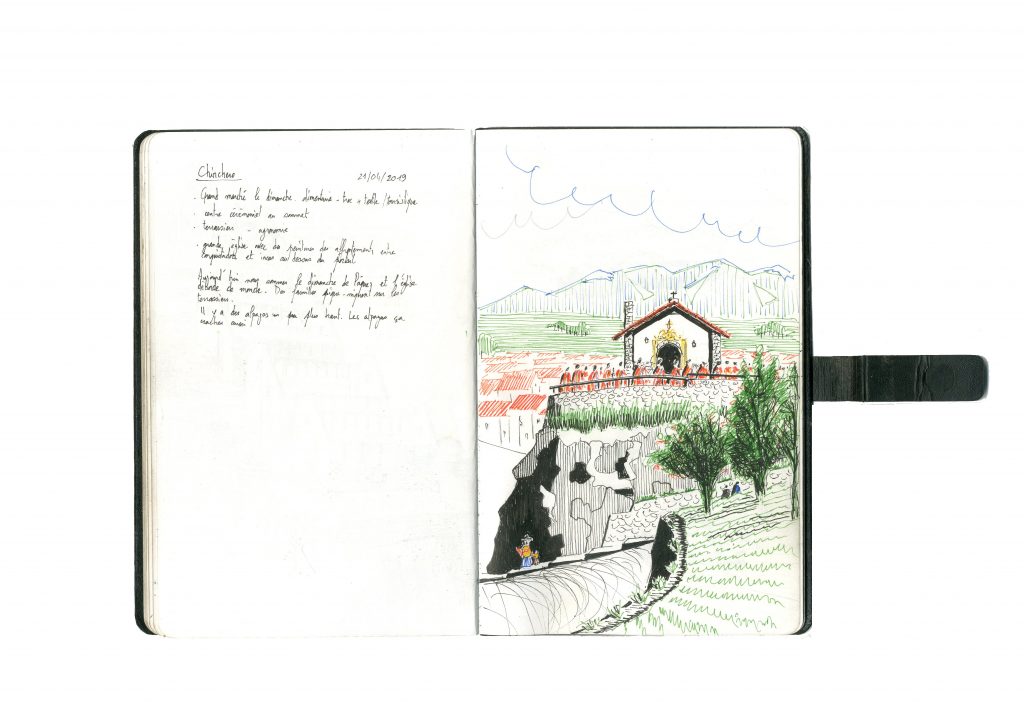 Chinchero 21/04/2019
- Grand marché le dimanche. alimentaire - troc + textile / touristique
- centre cérémoniel au sommet
- terrasses - agronomie
- grande église avec des peintures des affrontements entre
conquistadors et incas au dessus du portail
Aujourd'hui nous sommes le dimanche de Pâques et l'église
déborde de monde. Des familles pique-niquent sur les
terrasses.
Il y a des alpagas un peu plus haut. Les alpagas ça
crachent aussi